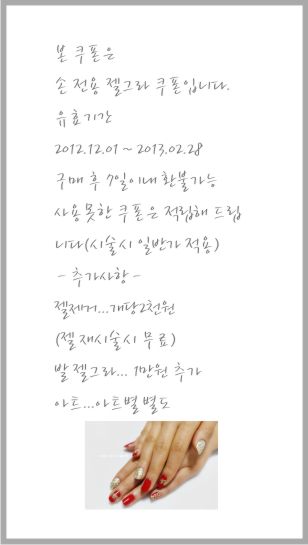 본 쿠폰은
손 전용 젤그라 쿠폰입니다.
유효기간
2012.12.01 ~ 2013.02.28
구매 후 7일이내 환불가능
사용못한 쿠폰은 적립해 드립
니다(시술시 일반가 적용)
- 추가사항 -
젤제거...개당2천원
(젤 재시술시 무료)
발 젤그라... 1만원 추가
아트...아트별 별도